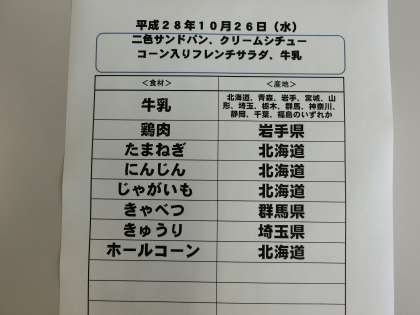 平成28年10月26日（水）
二色サンドパン、クリームシチュー
コーン入りフレンチサラダ、牛乳
＜食材＞ ＜産地＞
牛乳 北海道、青森、岩手、宮城、山
形、埼玉、栃木、群馬、神奈川、
静岡、千葉、福島のいずれか
鶏肉 岩手県
たまねぎ 北海道
にんじん 北海道
じゃがいも 北海道
きゃべつ 群馬県
きゅうり 埼玉県
ホールコーン 北海道